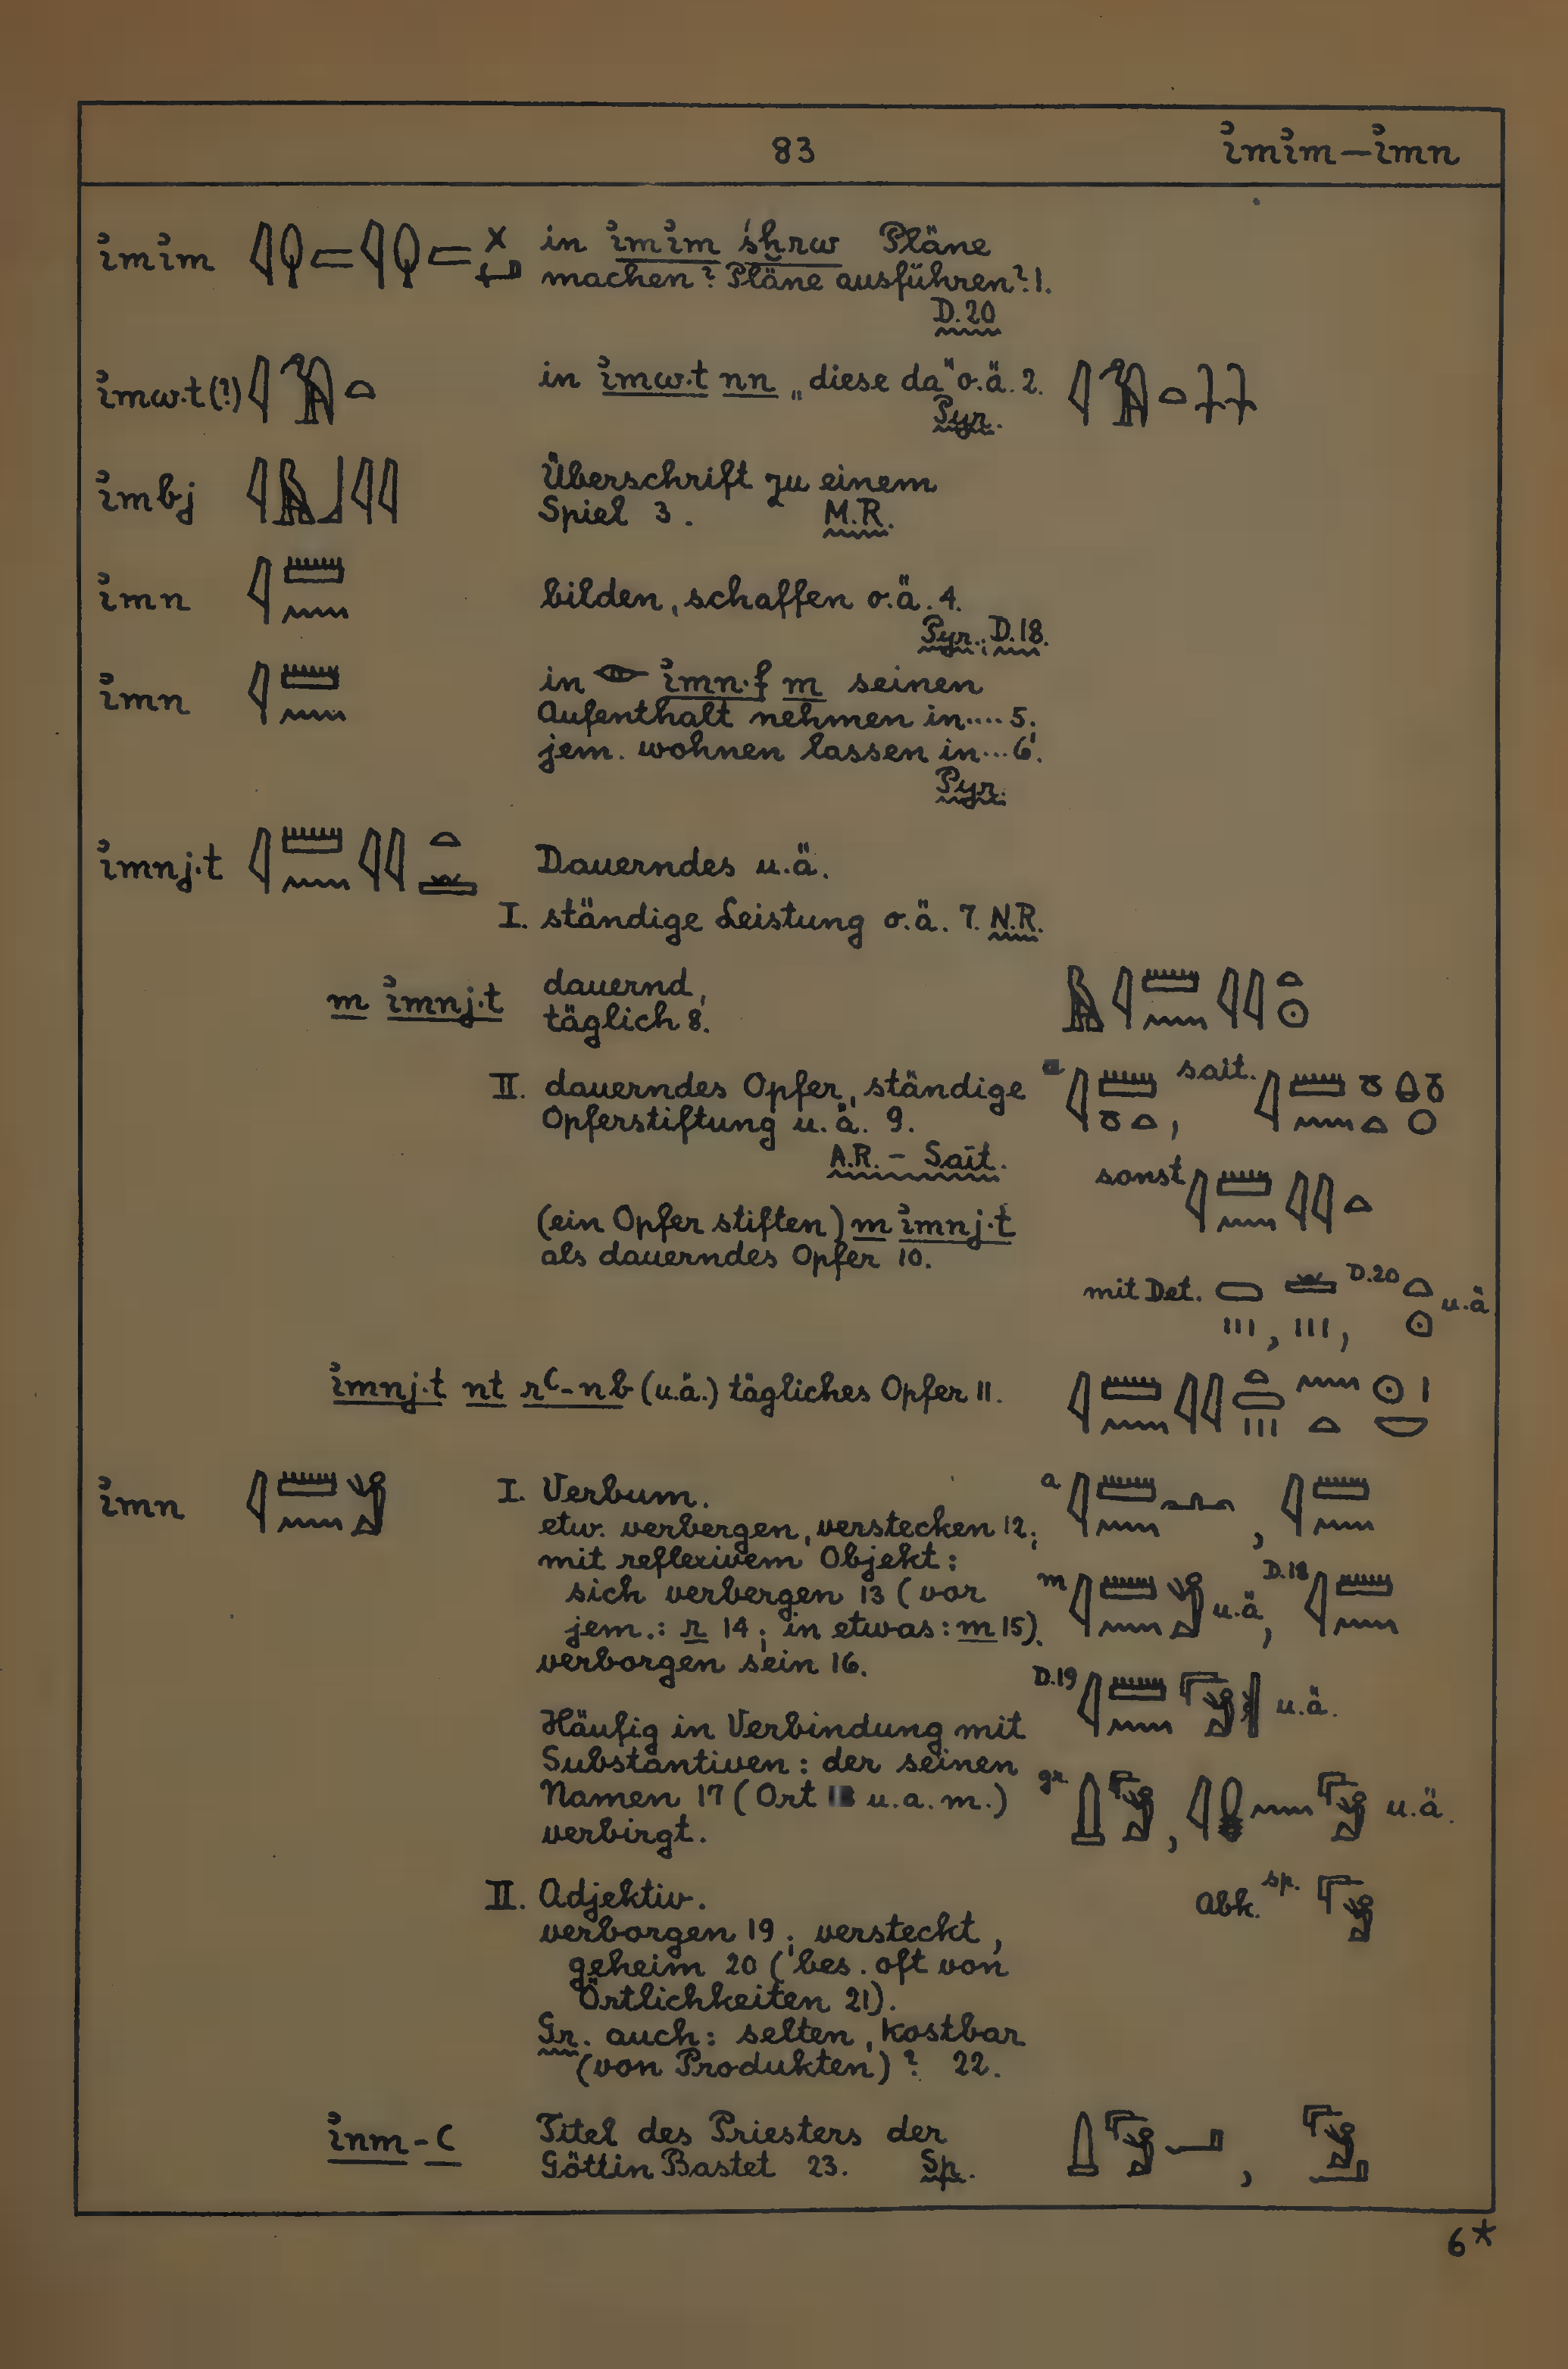 83 ı͗mı͗m — ı͗mn
ı͗mı͗m in ı͗mı͗m śḫrw Pläne
machen? Pläne ausführen? 1.
D. 20
ı͗mw.t (?) in ı͗mw.t nn „diese da" o. ä. 2.
Pyr.
ı͗mbj Überschrift zu einem
Spiel 3. M.R.
ı͗mn
bilden, schaffen o. ä. 4.
Pyr.; D. 18.
ı͗mn in ı͗mn.f m seinen
Aufenthalt nehmen in .... 5.
jem. wohnen lassen in ... 6.
Pyr.
ı͗mnj.t Dauerndes u. ä.
I. ständige Leistung o. ä. 7. N.R.
m ı͗mnj.t dauernd,
täglich 8.
II. dauerndes Opfer, ständige a sait.
Opferstiftung u. ä. 9.
A.R. – Sait. sonst
(ein Opfer stiften) m ı͗mnj.t
als dauerndes Opfer 10.
mit Det. , , D. 20 u. ä.
ı͗mnj.t nt rꜥ-nb (u. ä.) tägliches Opfer 11.
ı͗mn I. Verbum. a
etw. verbergen, verstecken 12;
mit reflexivem Objekt:
sich verbergen 13 (vor m u. ä., D. 18
jem.: r 14; in etwas: m 15).
verborgen sein 16. D. 19 u. ä.
Häufig in Verbindung mit
Substantiven: der seinen
Namen 17 (Ort u. a. m.) gr. , u. ä.
verbirgt.
II. Adjektiv. Abk. sp.
verborgen 19; versteckt,
geheim 20 (bes. oft von
Örtlichkeiten 21).
Gr. auch: selten, kostbar
(von Produkten)? 22.
ı͗nm-ꜥ Titel des Priesters der
Göttin Bastet 23. Sp.
6*